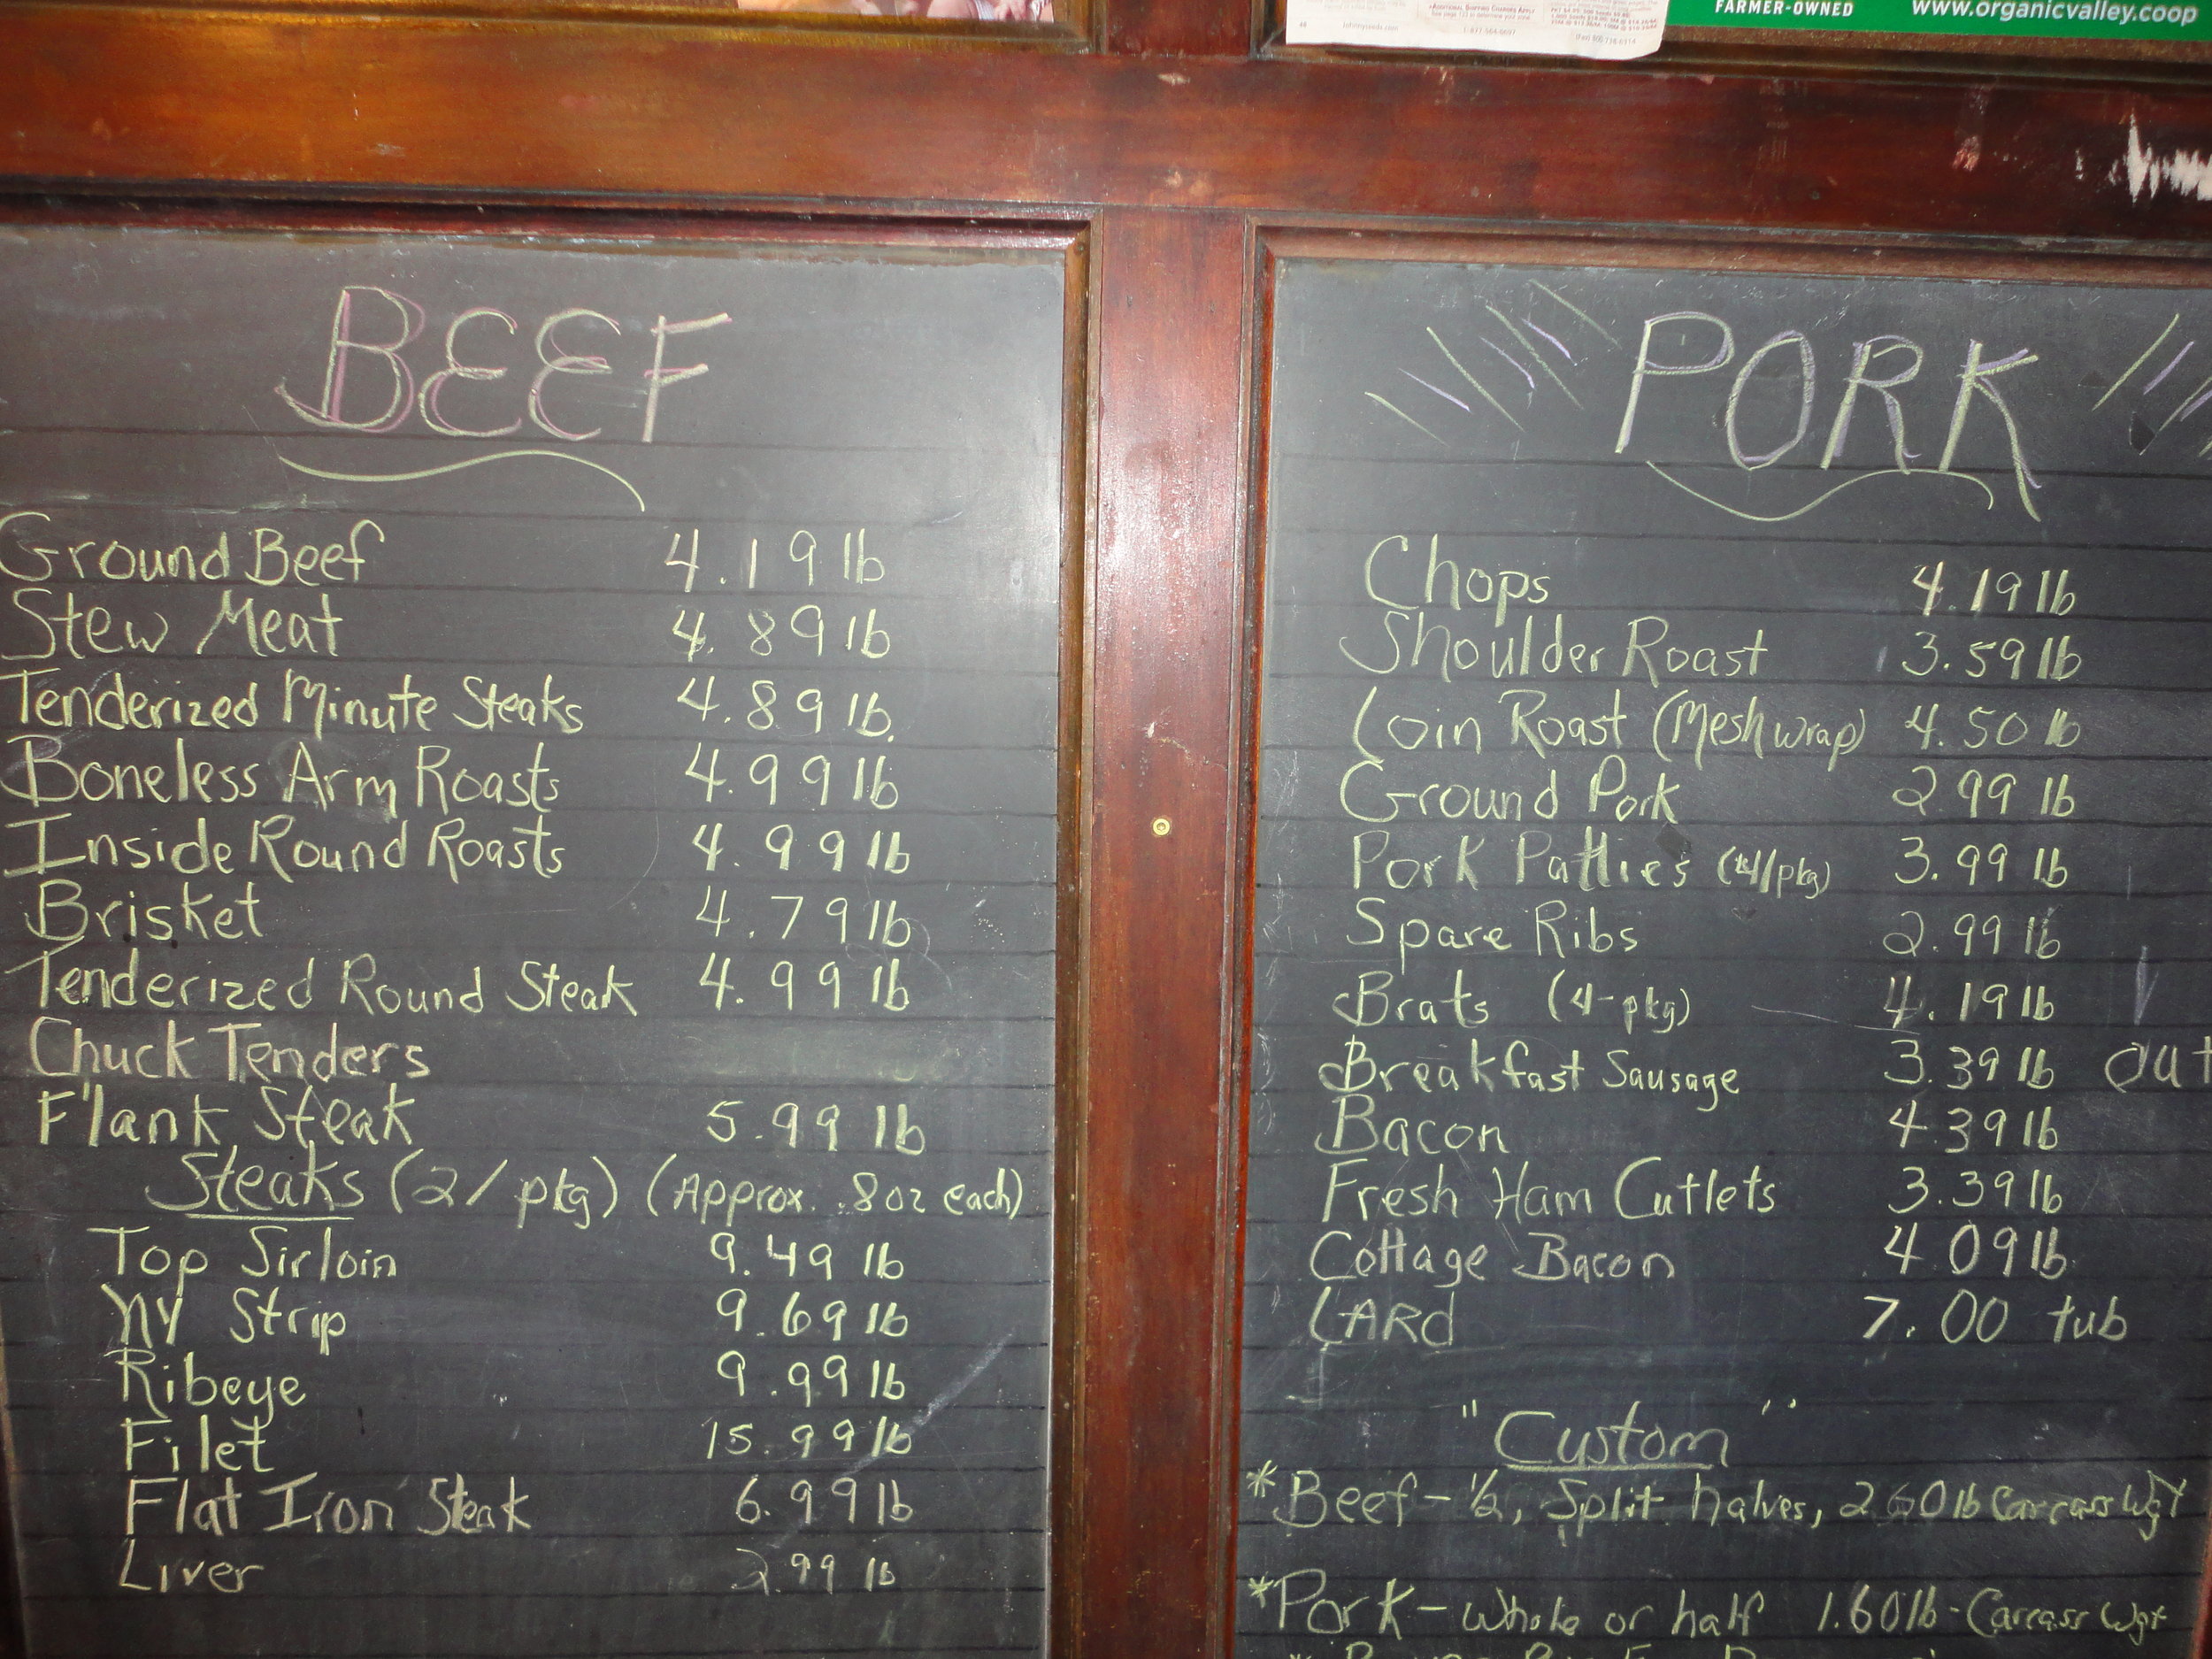 FARMER-OWNED www.organicvalley.coop
Johnnyseeds.com 1-877-564-6697
BEEF
Ground Beef 4.19 lb
Stew Meat 4.89 lb
Tenderized Minute Steaks 4.89 lb.
Boneless Arm Roasts 4.99 lb
Inside Round Roasts 4.99 lb
Brisket 4.79 lb
Tenderized Round Steak 4.99 lb
Chuck Tenders
Flank Steak 5.99 lb
Steaks (2/pkg) (Approx. .8oz each)
Top Sirloin 9.49 lb
NY Strip 9.69 lb
Ribeye 9.99 lb
Filet 15.99 lb
Flat Iron Steak 6.99 lb
Liver 2.99 lb
PORK
Chops 4.19 lb
Shoulder Roast 3.59 lb
Loin Roast (Mesh wrap) 4.50 lb
Ground Pork 2.99 lb
Pork Patties (4/pkg) 3.99 lb
Spare Ribs 2.99 lb
Brats (4-pkg) 4.19 lb
Breakfast Sausage 3.39 lb out
Bacon 4.39 lb
Fresh Ham Cutlets 3.39 lb
Cottage Bacon 4.09 lb
LARd 7.00 tub
"Custom"
*Beef - ½, Split halves, 2.60 lb Carcass Wgt
*Pork - Whole or half 1.60 lb - Carcass Wgt